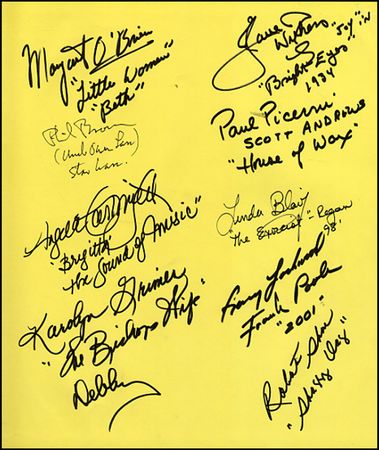 Margaret O'Brien
"Little Women"
"Beth"
Phil Brown
(Uncle Owen Lars)
Star Wars.
Angela Cartwright
"Brigitta"
the Sound of Music"
Karolyn Grimes
"The Bishops Wife"
Debby
Jane Withers
"Joy" in
"Bright Eyes"
1934
Paul Picerni
SCOTT ANDREWS
"House of Wax"
Linda Blair
"The Exorcist" - Regan
98'
Gary Lockwood
Frank Poole
"2001"
Robert Shaw
"Shaggy Dog"